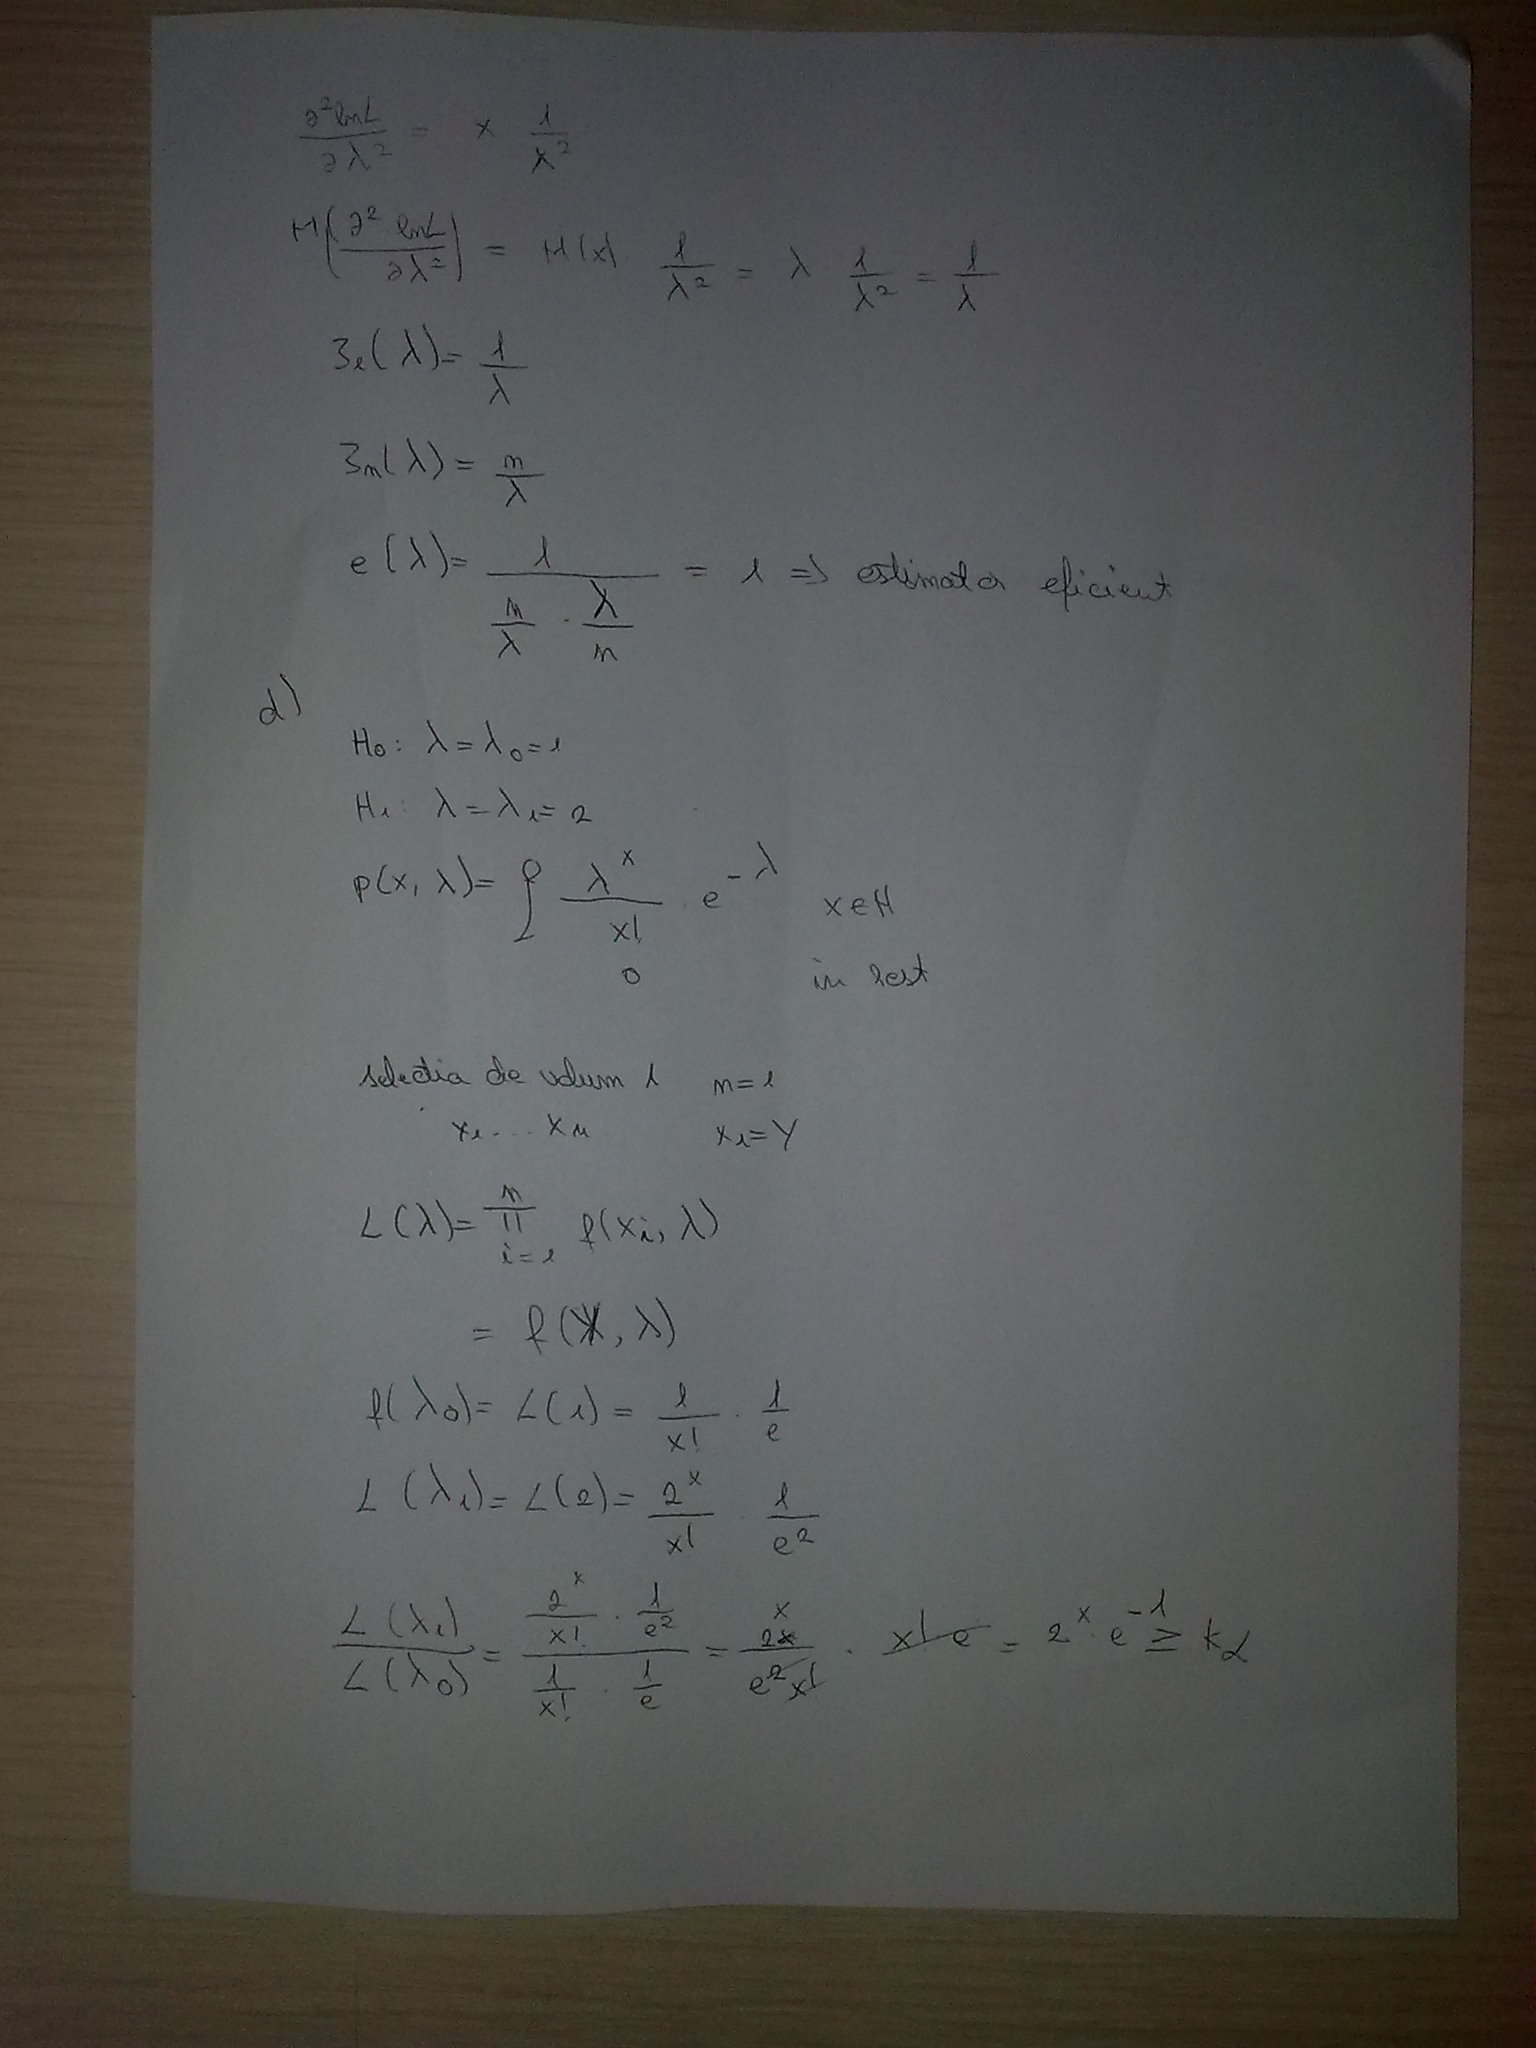 ∂² lnL / ∂λ² = x 1/x²
M(∂² lnL / ∂λ²) = M(x) 1/λ² = λ 1/λ² = 1/λ
I₁(λ) = 1/λ
Iₙ(λ) = n/λ
e(λ) = 1 / (n/λ · λ/n) = 1 => estimator eficient
d)
H₀: λ = λ₀ = 1
H₁: λ = λ₁ = 2
p(x, λ) = { λˣ/x! e^(-λ) x ∈ N
0 in rest
selectia de volum 1 n = 1
x₁ ... xₙ x₁ = Y
L(λ) = ∏ᵢ₌₁ⁿ f(xᵢ, λ)
= f(X, λ)
f(λ₀) = L(1) = 1/x! · 1/e
L(λ₁) = L(2) = 2ˣ/x! · 1/e²
L(λ₁)/L(λ₀) = (2ˣ/x! · 1/e²) / (1/x! · 1/e) = 2ˣ/(e² x!) · x! e = 2ˣ · e⁻¹ ≥ k_α